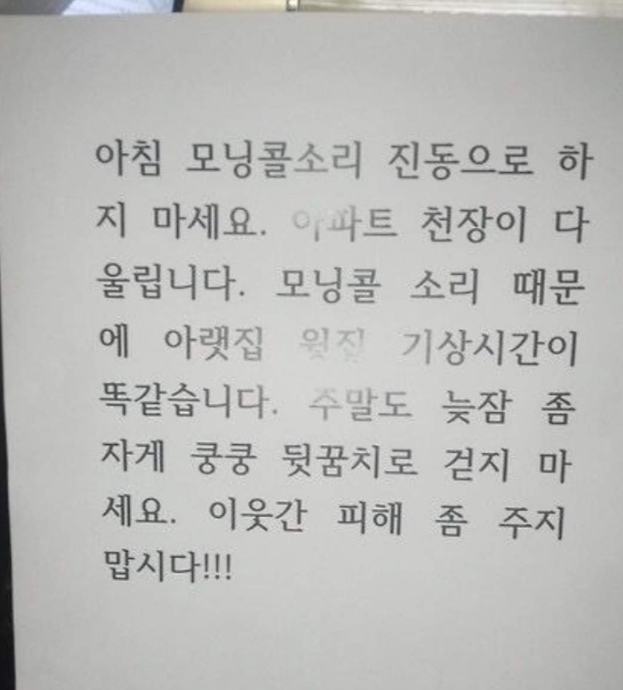 아침 모닝콜소리 진동으로 하
지 마세요. 아파트 천장이 다
울립니다. 모닝콜 소리 때문
에 아랫집 윗집 기상시간이
똑같습니다. 주말도 늦잠 좀
자게 쿵쿵 뒷꿈치로 걷지 마
세요. 이웃간 피해 좀 주지
맙시다!!!